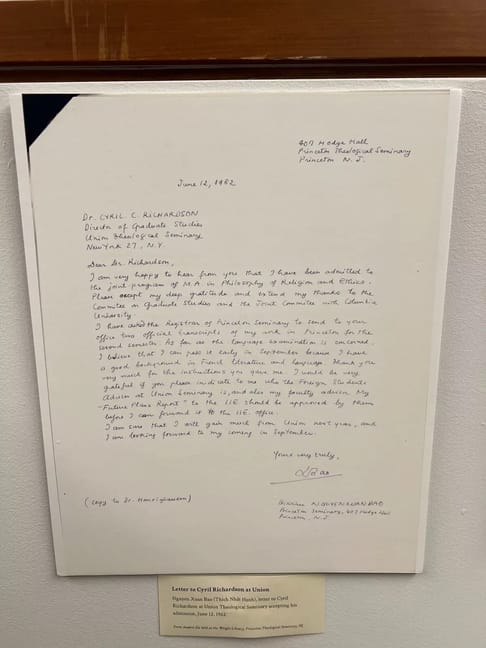 407 Hodge Hall
Princeton Theological Seminary
Princeton N. J.
June 12, 1962
Dr. CYRIL C. RICHARDSON
Director of Graduate Studies
Union Theological Seminary
New York 27, N.Y.
Dear Dr. Richardson,
I am very happy to hear from you that I have been admitted to
the joint program of M.A in Philosophy of Religion and Ethics.
Please accept my deep gratitude and extend my thanks to the
Commitee on Graduate Studies and the Joint Commitee with Columbia
University.
I have asked the Registrar of Princeton Seminary to send to your
office two official transcripts of my work in Princeton for the
second semester. As far as the language examination is concerned
I believe that I can pass it early in September because I have
a good background in French literature and language. Thank you
very much for the instructions you gave me. I would be very
grateful if you please indicate to me who the Foreign Students
Adviser at Union Seminary is, and also my faculty adviser. My
"Future Plans Report" to the IIE should be approved by them
before I can forward it to the IIE office.
I am sure that I will gain much from Union next year, and
I am looking forward to my coming in September.
Yours very truly,
(copy to Dr. )
NGUYEN XUAN BAO
Princeton Seminary, 407 Hodge Hall
Princeton, N.J.
Letter to Cyril Richardson at Union
Nguyen Xuan Bao (Thich Nhất Hạnh), letter to Cyril
Richardson at Union Theological Seminary accepting his
admission, June 12, 1962
From student file held at the Wright Library, Princeton Theological Seminary, NJ